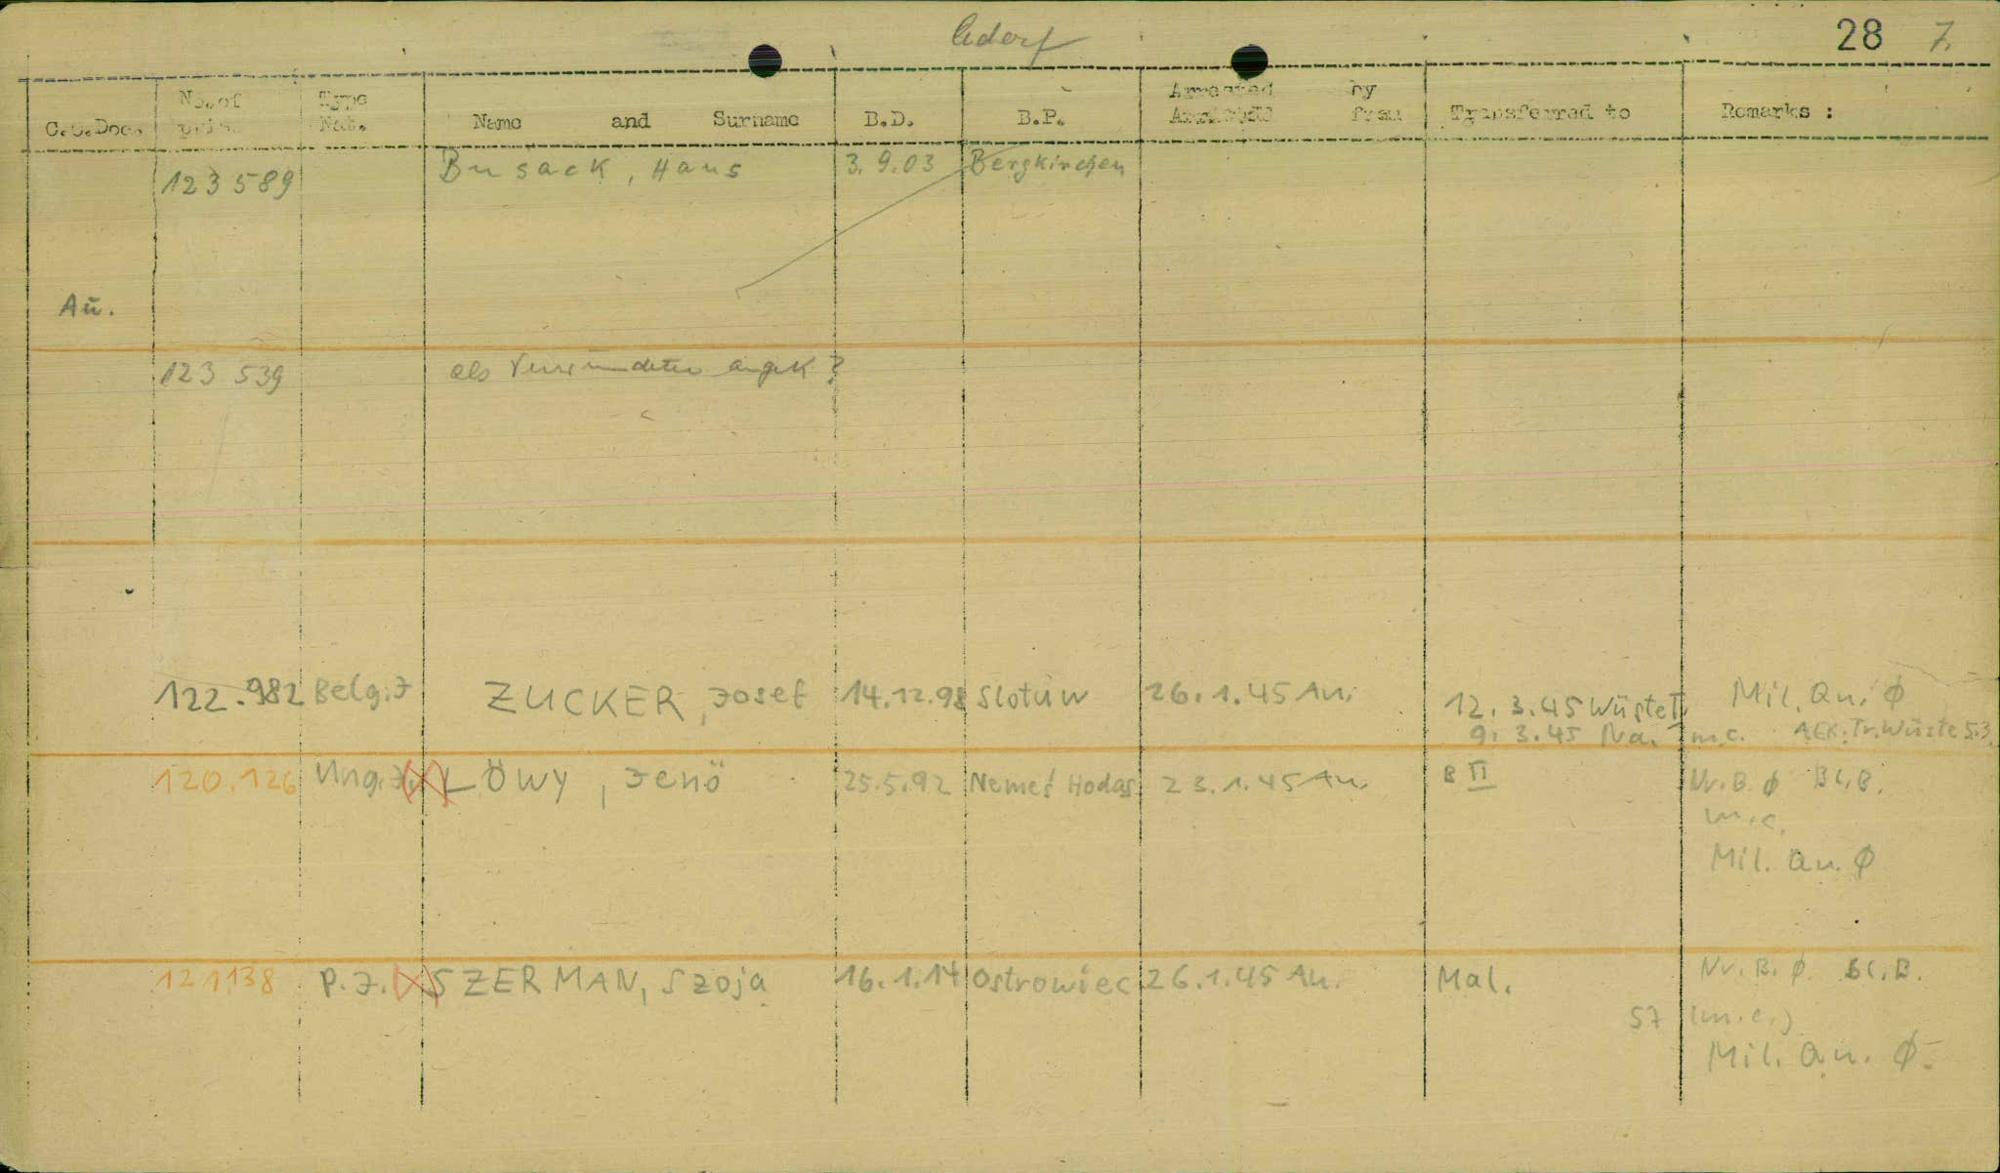 28 7.
C.C.Doc. No. of pris. Type Nat. Name and Surname B.D. B.P. Arrested by Arrived from Transferred to Remarks :
123 589 Busack, Hans 3.9.03 Bergkirchen
Aü.
123 539 als
122.982 Belg.J ZUCKER, Josef 14.12.98 Slotúw 26.1.45 Au. 12.3.45 Wüste Mil. Qu. Ø
9.3.45 Na. m.c. Tr. Wüste 5.3.
120.126 Ung.J. (X) LÖWY, Jenö 25.5.92 Nemeš Hodas 23.1.45 Au. B II Nr.B. Ø Bl.B.
m.c.
Mil. Qu. Ø
121138 P.J. (X) SZERMAN, Szoja 16.1.14 Ostrowiec 26.1.45 Au. Mal. Nr.B. Ø. Bl.B.
57 (m.c.)
Mil. Qu. Ø